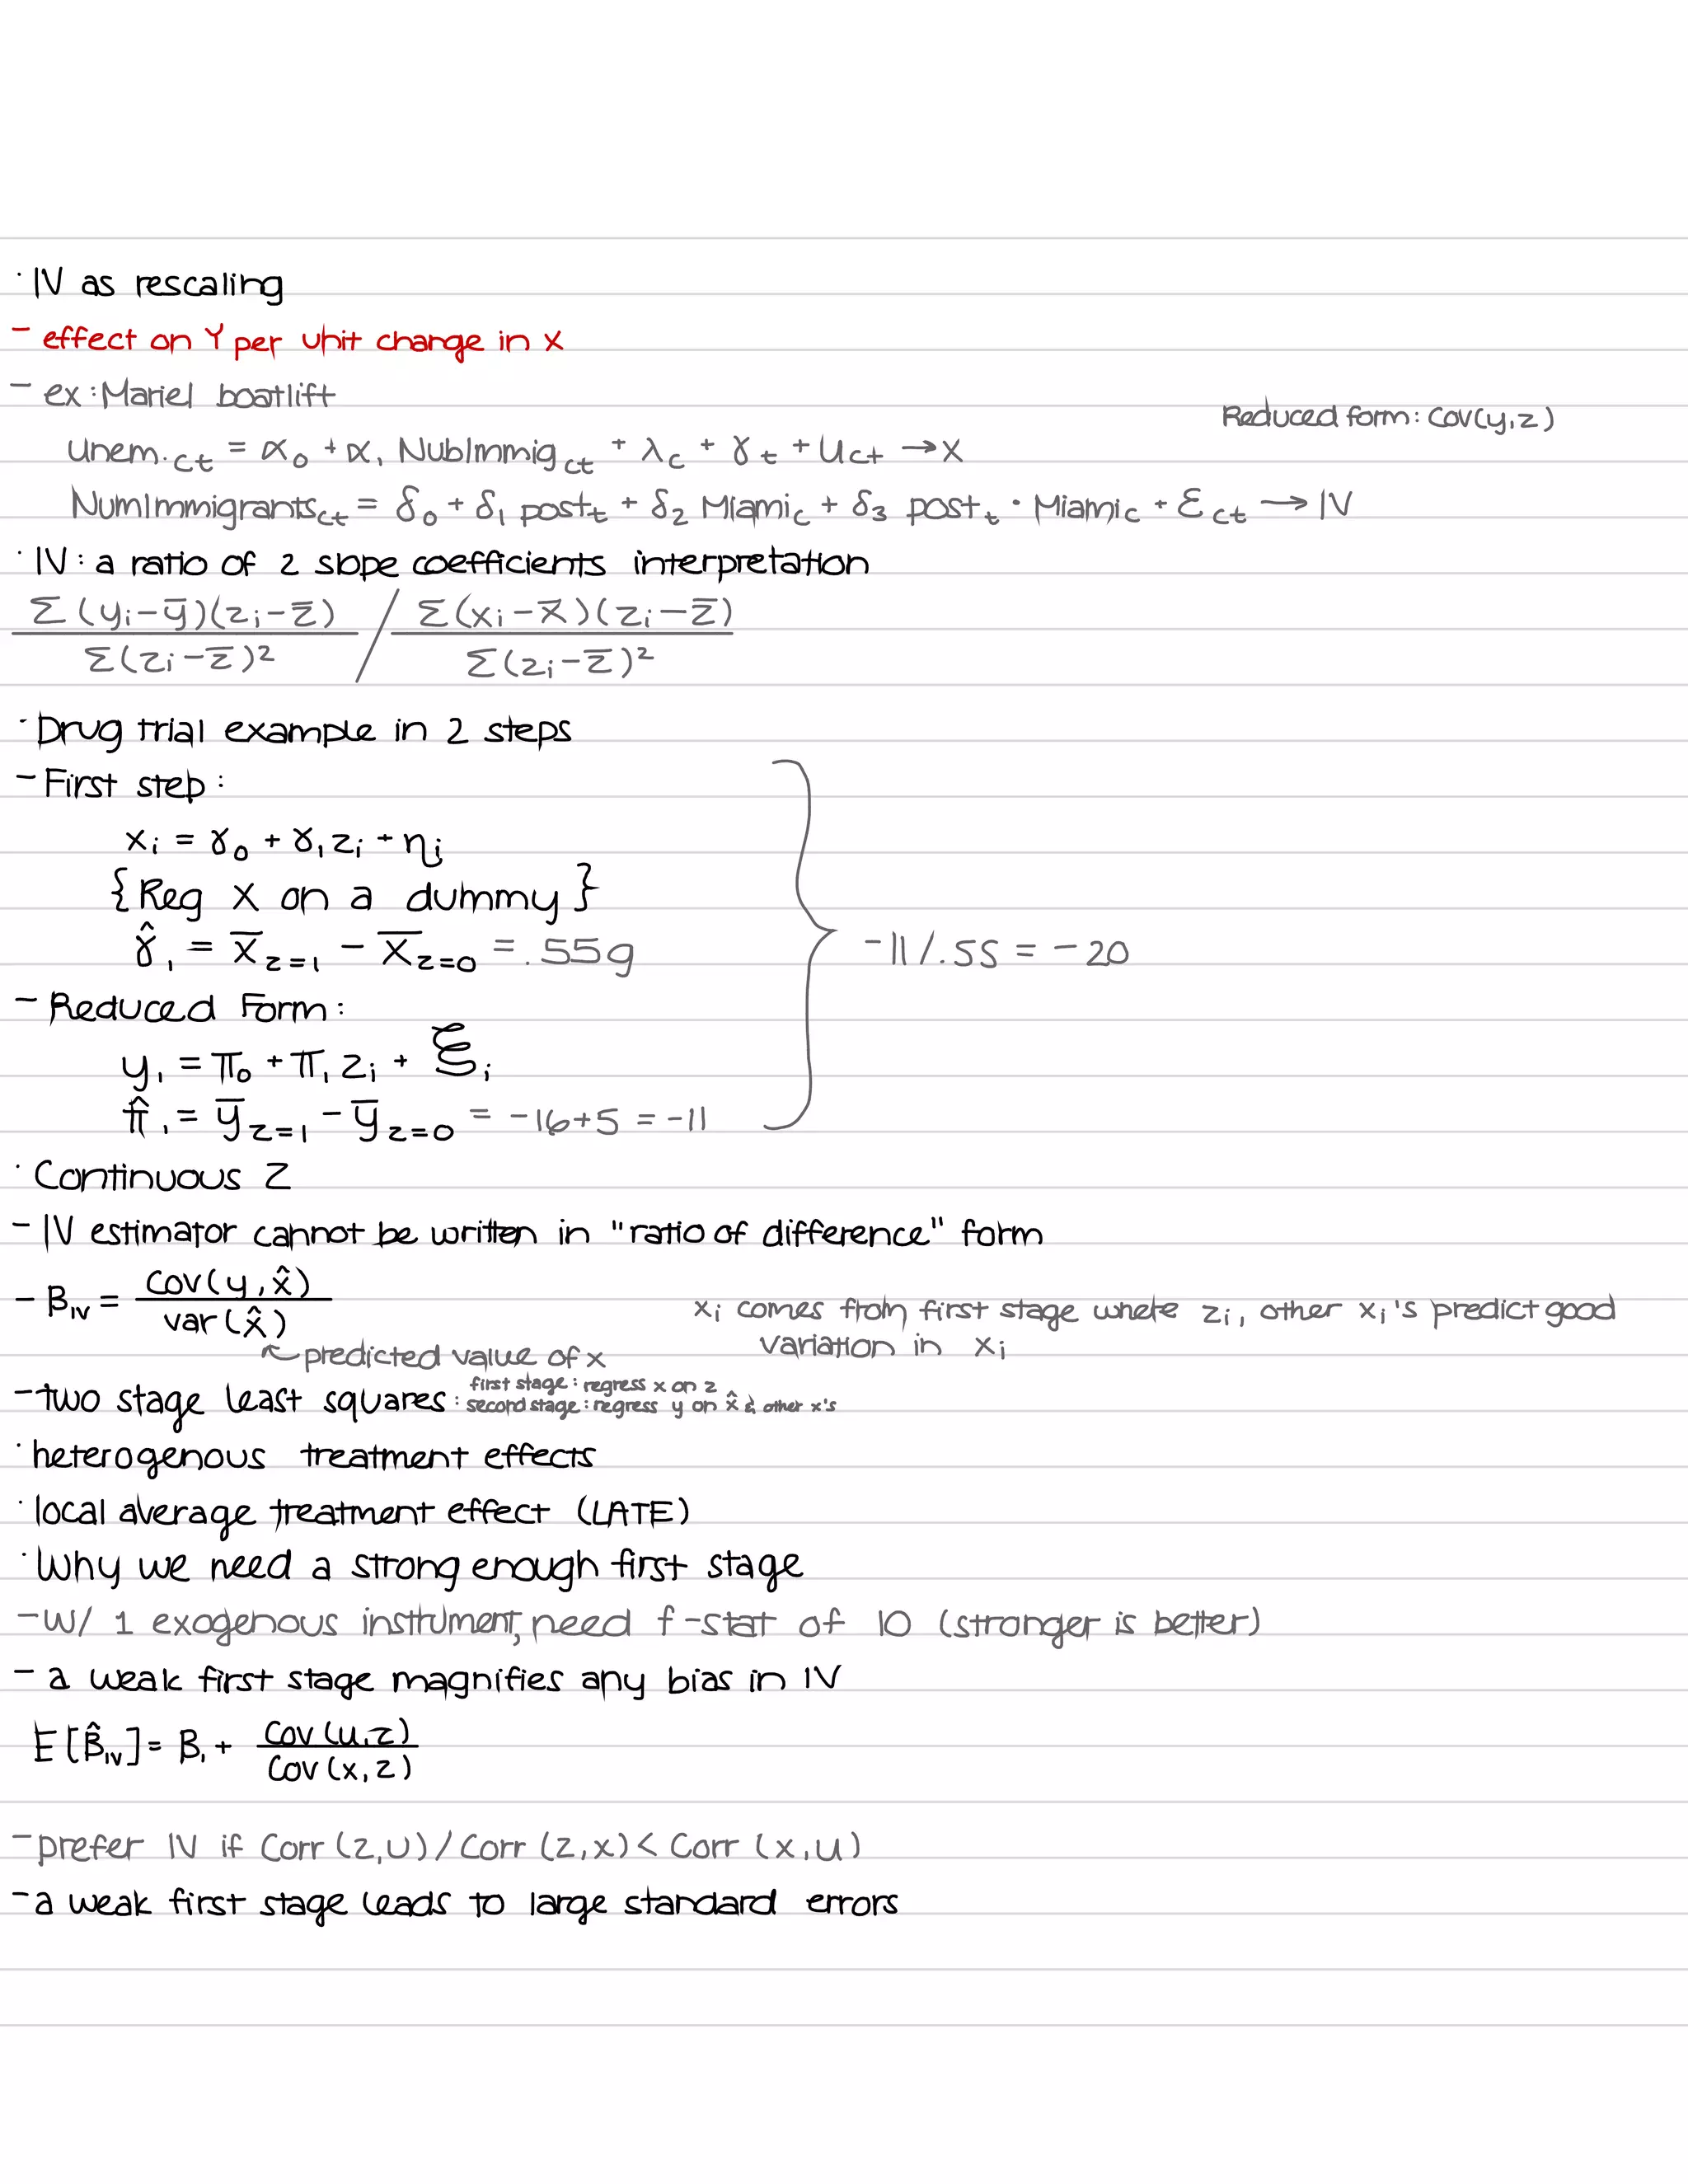 · IV as rescaling
- effect on Y per unit change in X
- ex: Mariel boatlift
Reduced form: Cov(y,z)
Unem._ct = α₀ + α₁ NubImmig_ct + λ_c + γ_t + U_ct → X
NumImmigrants_ct = δ₀ + δ₁ post_t + δ₂ Miami_c + δ₃ post_t · Miami_c + Ɛ_ct → IV
· IV: a ratio of 2 slope coefficients interpretation
Σ(yᵢ-ȳ)(zᵢ-z̄) / Σ(xᵢ-x̄)(zᵢ-z̄)
Σ(zᵢ-z̄)² Σ(zᵢ-z̄)²
· Drug trial example in 2 steps
- First step:
xᵢ = γ₀ + γ₁zᵢ + ηᵢ
{Reg X on a dummy}
γ̂₁ = x̄_z=1 - x̄_z=0 = .55g
-11/.55 = -20
- Reduced Form:
y₁ = π₀ + π₁zᵢ + ξᵢ
π̂₁ = ȳ_z=1 - ȳ_z=0 = -16+5 = -11
· Continuous Z
- IV estimator cannot be written in "ratio of difference" form
- B_IV = Cov(y,x̂)
var(x̂)
xᵢ comes from first stage where zᵢ, other xᵢ's predict good
variation in xᵢ
predicted value of x
- two stage least squares: first stage: regress x on z
second stage: regress y on x̂ & other x's
· heterogenous treatment effects
· local average treatment effect (LATE)
· Why we need a strong enough first stage
- W/ 1 exogenous instrument, need f-stat of 10 (stronger is better)
- a weak first stage magnifies any bias in IV
E[B̂_IV] = B₁ + Cov(u,z)
Cov(x,z)
- prefer IV if Corr(z,u)/Corr(z,x) < Corr(x,u)
- a weak first stage leads to large standard errors